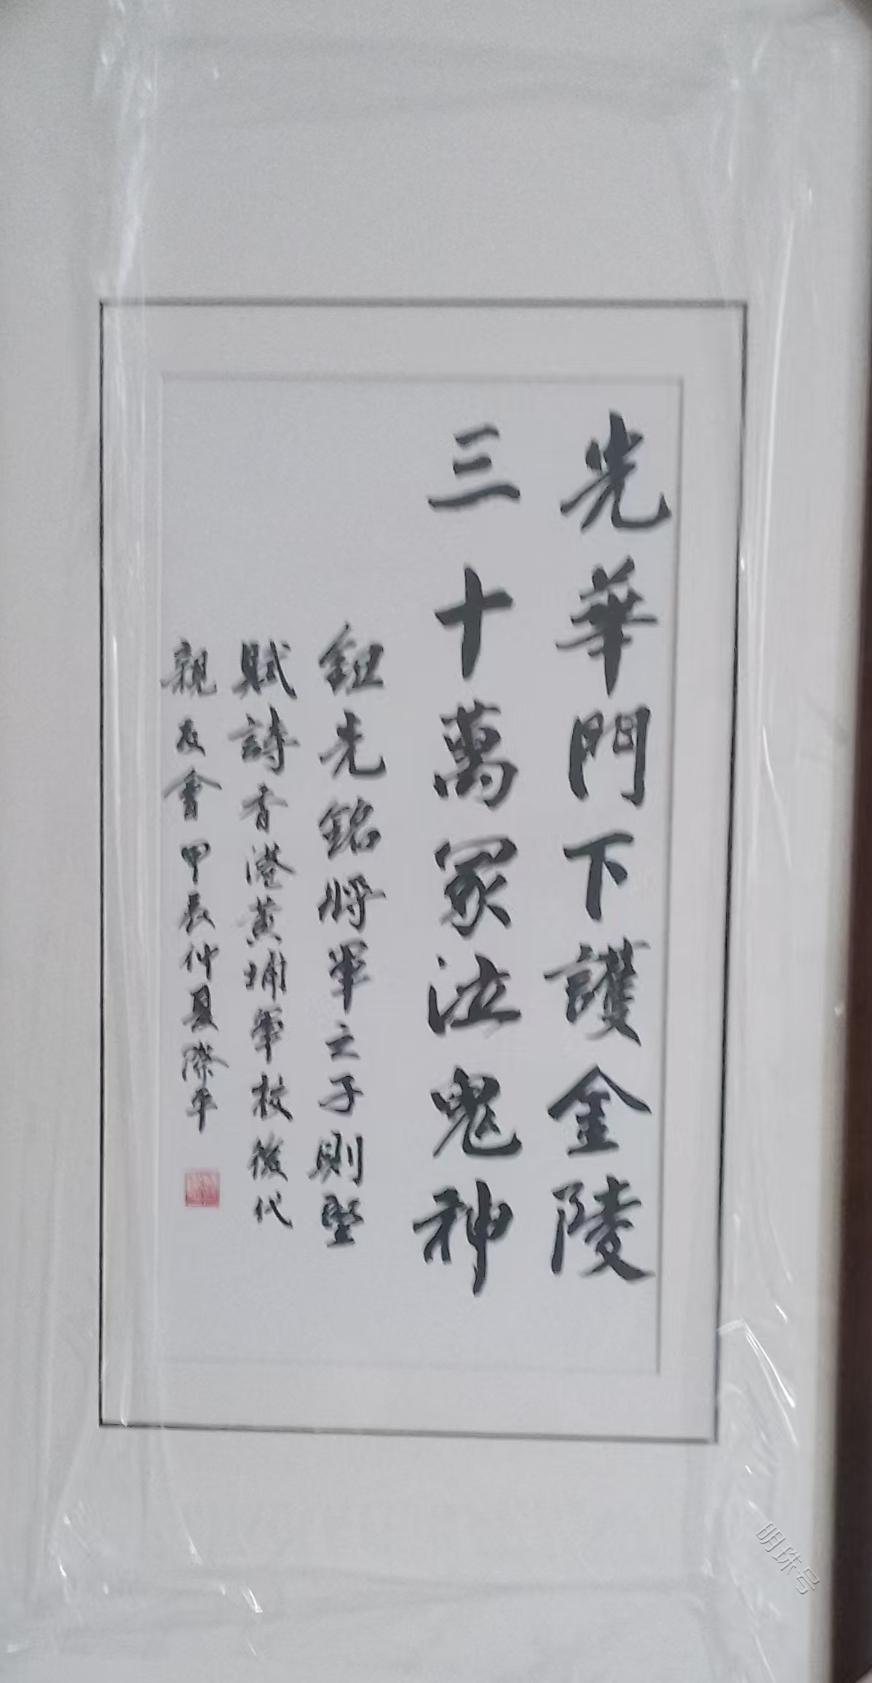 光華門下護金陵
三十萬冢泣鬼神
鈕先銘將軍之子則堅
賦詩香港黃埔軍校後代
親友會甲辰仲夏際平
明珠号